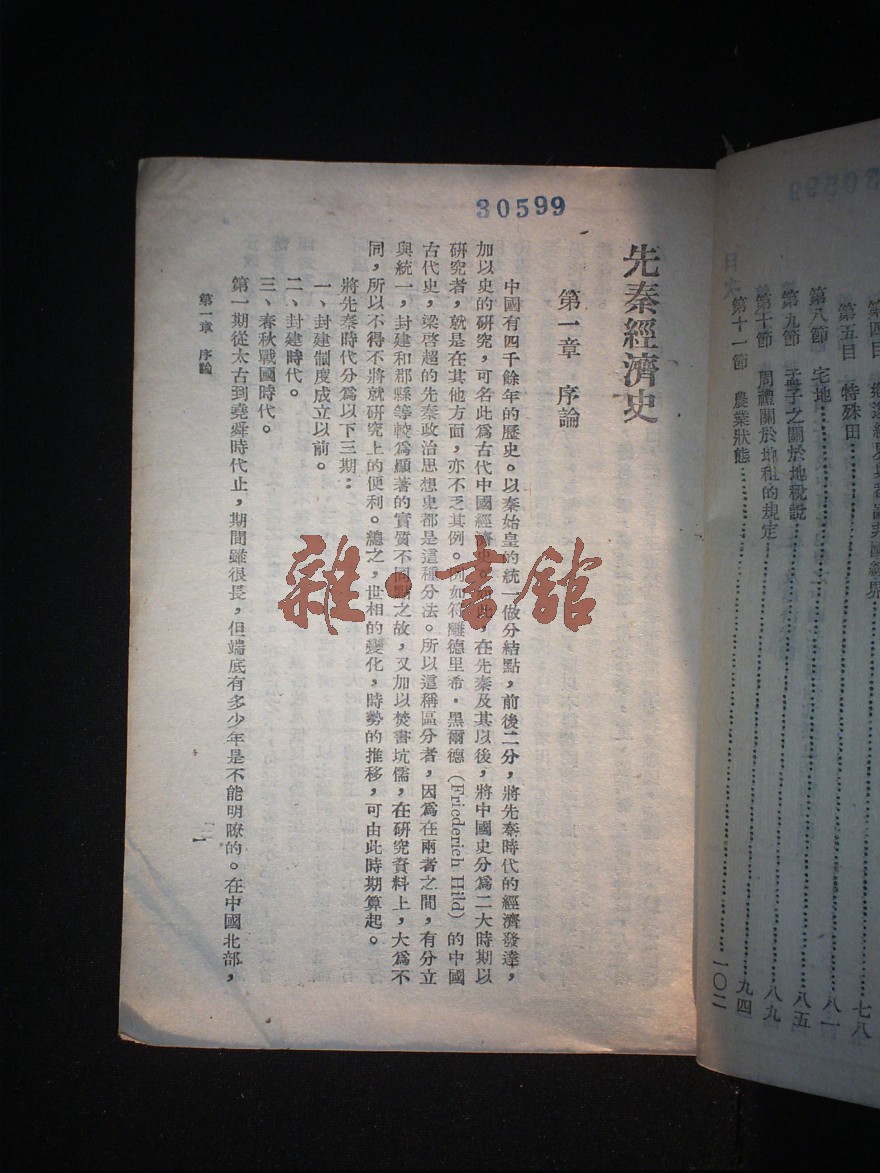 30599
目
第五目 特殊田 七八
第八節 宅地 八一
第九節 孟子之關於地稅說 八五
第十節 周禮關於地租的規定 八九
第十一節 農業狀態 九四
一〇二
30599
先秦經濟史
第一章 序論
中國有四千餘年的歷史。以秦始皇的統一做分結點，前後二分，將先秦時代的經濟發達，
加以史的研究，可名此爲古代中國經濟史。如此，在先秦及其以後，將中國史分爲二大時期以
研究者，就是在其他方面，亦不乏其例。例如符離德里希．黑爾德 (Friederich Hild) 的中國
古代史，梁啓超的先秦政治思想史都是這種分法。所以這稱區分者，因爲在兩者之間，有分立
與統一，封建和郡縣等較爲顯著的實質不同點之故，又加以焚書坑儒，在研究資料上，大爲不
同，所以不得不將就研究上的便利。總之，世相的變化，時勢的推移，可由此時期算起。
將先秦時代分爲以下三期：
一、封建制度成立以前。
二、封建時代。
三、春秋戰國時代。
第一期從太古到堯舜時代止，期間雖很長，但端底有多少年是不能明瞭的。在中國北部，
第一章 序論
一
雜·書舘